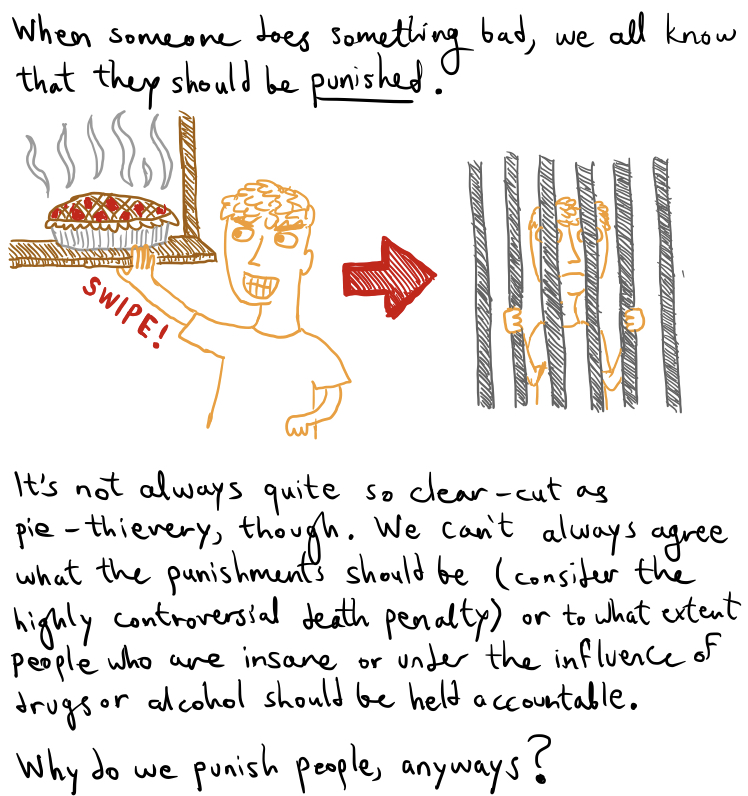 When someone does something bad, we all know
that they should be punished.
SWIPE!
It's not always quite so clear-cut as
pie-thievery, though. We can't always agree
what the punishments should be (consider the
highly controversial death penalty) or to what extent
people who are insane or under the influence of
drugs or alcohol should be held accountable.
Why do we punish people, anyways?